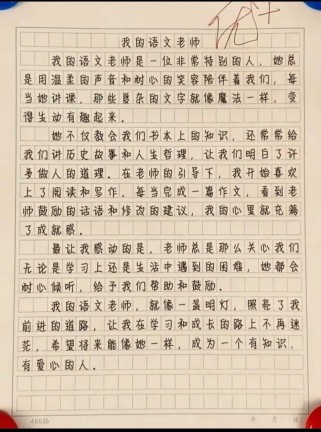 优+
我的语文老师
我的语文老师是一位非常特别的人，她总
是用温柔的声音和耐心的笑容陪伴着我们，每
当她讲课，那些复杂的文字就像魔法一样，变
得生动有趣起来。
她不仅教会我们书本上的知识，还常常给
我们讲历史故事和人生哲理，让我们明白了许
多做人的道理，在老师的引导下，我开始喜欢
上了阅读和写作，每当完成一篇作文，看到老
师鼓励的话语和修改的建议，我的心里就充满
了成就感。
最让我感动的是，老师总是那么关心我们
无论是学习上还是生活中遇到的困难，她都会
耐心倾听，给予我们帮助和鼓励。
我的语文老师，就像一盏明灯，照亮了我
前进的道路，让我在学习和成长的路上不再迷
茫，希望将来能像她一样，成为一个有知识，
有爱心的人。